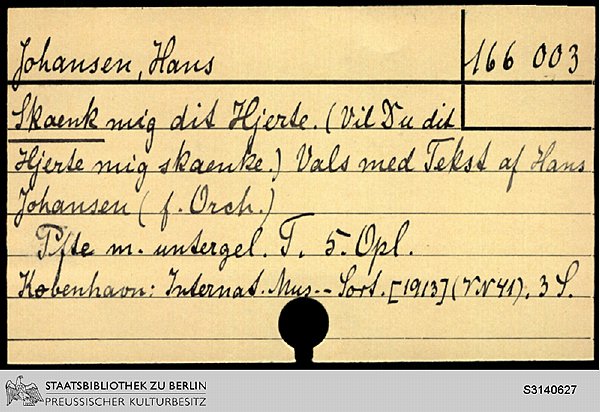 Johansen, Hans
166 003
Skaenk mig dit Hjerte. (Vil Du dit
Hjerte mig skaenke.) Vals med Tekst af Hans
Johansen (f. Orch.)
Pfte m. untergel. T. 5. Opl.
København: Internat. Mus.-Sort. [1913] (VN 41). 3 S.
STAATSBIBLIOTHEK ZU BERLIN
PREUSSISCHER KULTURBESITZ
S3140627